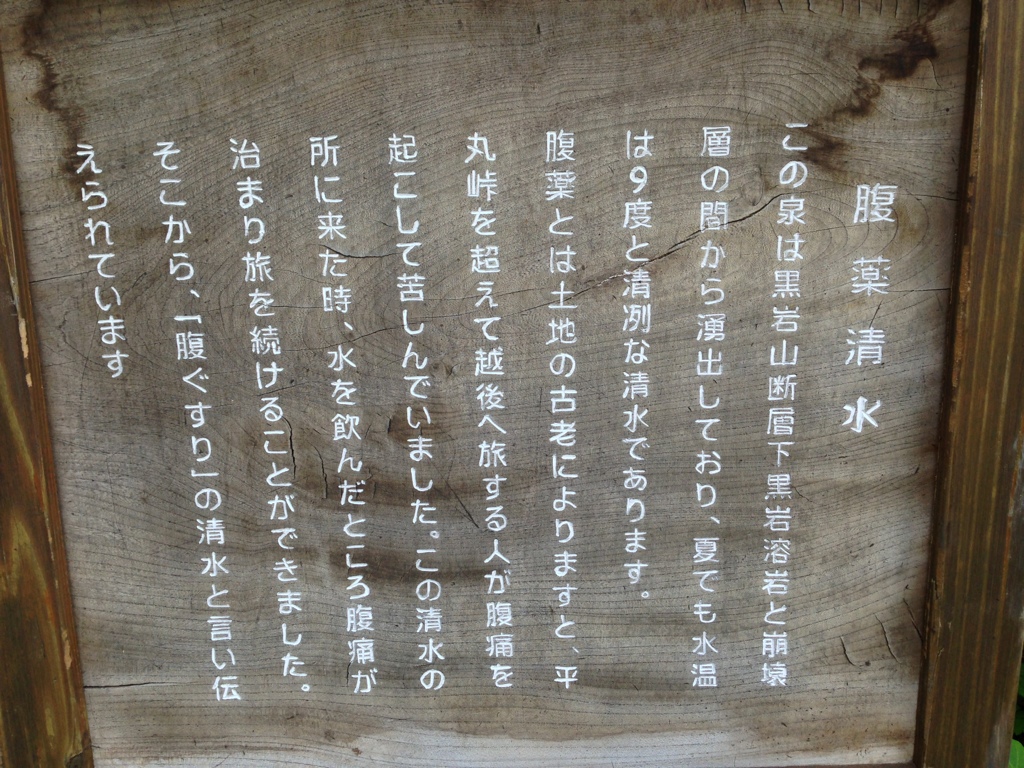 腹薬清水
この泉は黒岩山断層下黒岩溶岩と崩壊
層の間から湧出しており、夏でも水温
は9度と清冽な清水であります。
腹薬とは土地の古老によりますと、平
丸峠を超えて越後へ旅する人が腹痛を
起こして苦しんでいました。この清水の
所に来た時、水を飲んだところ腹痛が
治まり旅を続けることができました。
そこから、「腹ぐすり」の清水と言い伝
えられています